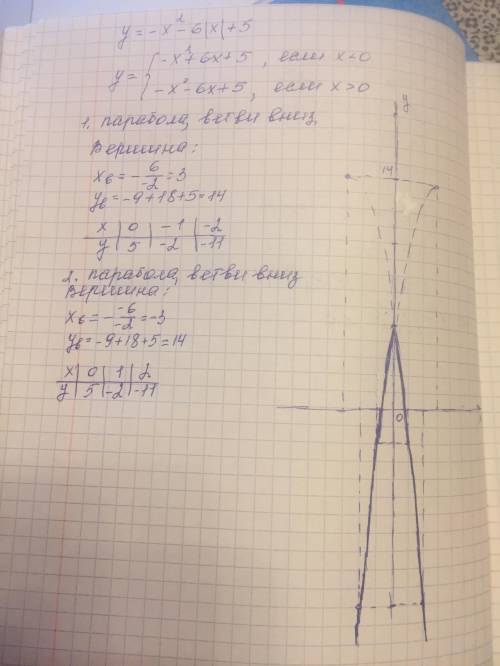 y = -x² - 6|x| + 5
y = { -x² + 6x + 5, если x < 0
-x² - 6x + 5, если x > 0
1. парабола, ветви вниз
Вершина:
xв = - 6/-2 = 3
yв = -9 + 18 + 5 = 14
x | 0 | -1 | -2
y | 5 | -2 | -11
2. парабола, ветви вниз
Вершина:
xв = - -6/-2 = -3
yв = -9 + 18 + 5 = 14
x | 0 | 1 | 2
y | 5 | -2 | -11
y
14
0